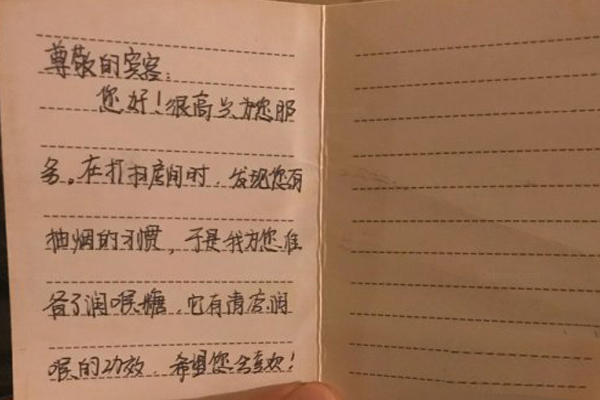 尊敬的宾客：
您好！很高兴为您服
务。在打扫房间时，发现您有
抽烟的习惯，于是我为您准
备了润喉糖，它有清凉润
喉的功效，希望您会喜欢！